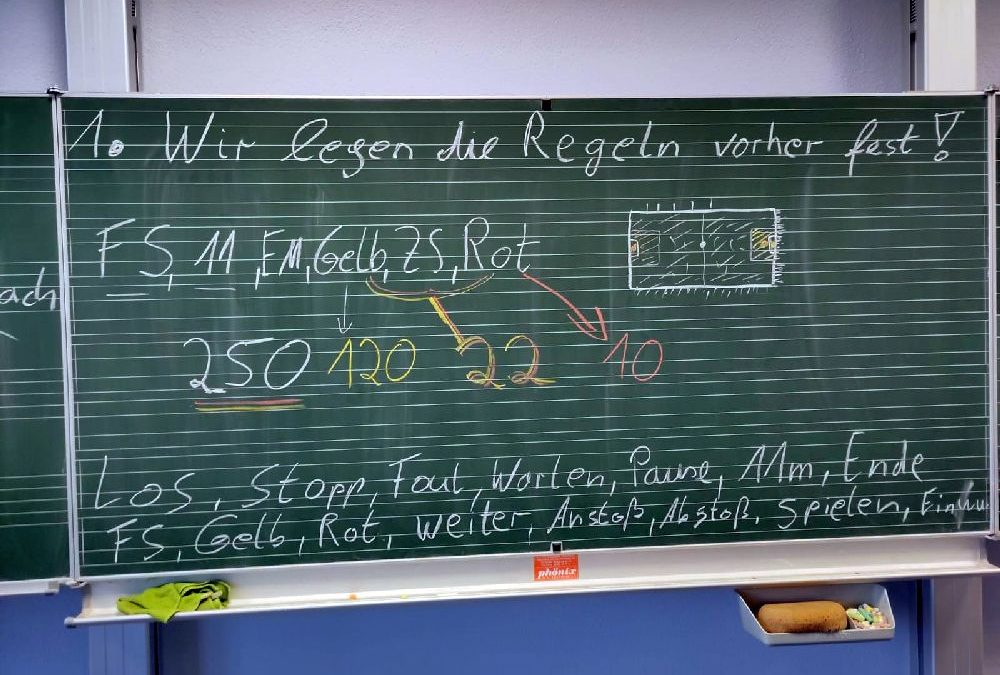 1. Wir legen die Regeln vorher fest!
FS, 11, EM, Gelb, ZS, Rot
ach
250 120 22 10
Los, Stopp, Foul, Warten, Pause, 11m, Ende
FS, Gelb, Rot, weiter, Anstoß, Abstoß, Spielen, Einwu
phönix